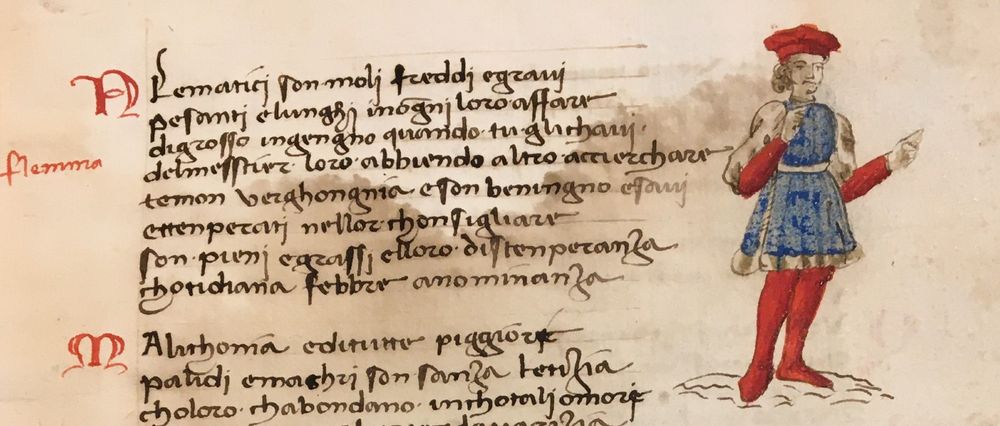 flemma
Flematici son moli freddi egravi
pesanti elunghi inogni loro affare
digrosso ingengno quando · tu · glichavi ·
delmesstier · loro · abbiendo altro accierchare
temon verghongnia eson beningno esavi
ettenperati nellor chonsigliare
son · pieni egrassi elloro · distenperanza
chotidiana febbre anominanza
Malichonia editutte piggiore
palidi emaghri son sanza letizia
choloro · chabondano · inchotali omori